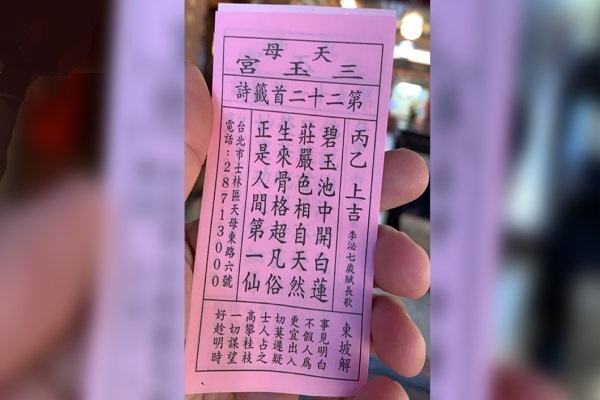 天母
三玉宮
第二十二首籤詩
丙乙 上吉 李泌七歲賦長歌
碧玉池中開白蓮
莊嚴色相自天然
生來骨格超凡俗
正是人間第一仙
台北市士林區天母東路六號
電話:28713000
東坡解
事見明白
不假人爲
更宜出入
切莫遲疑
士人占之
高攀桂枝
一切謀望
好趁明時